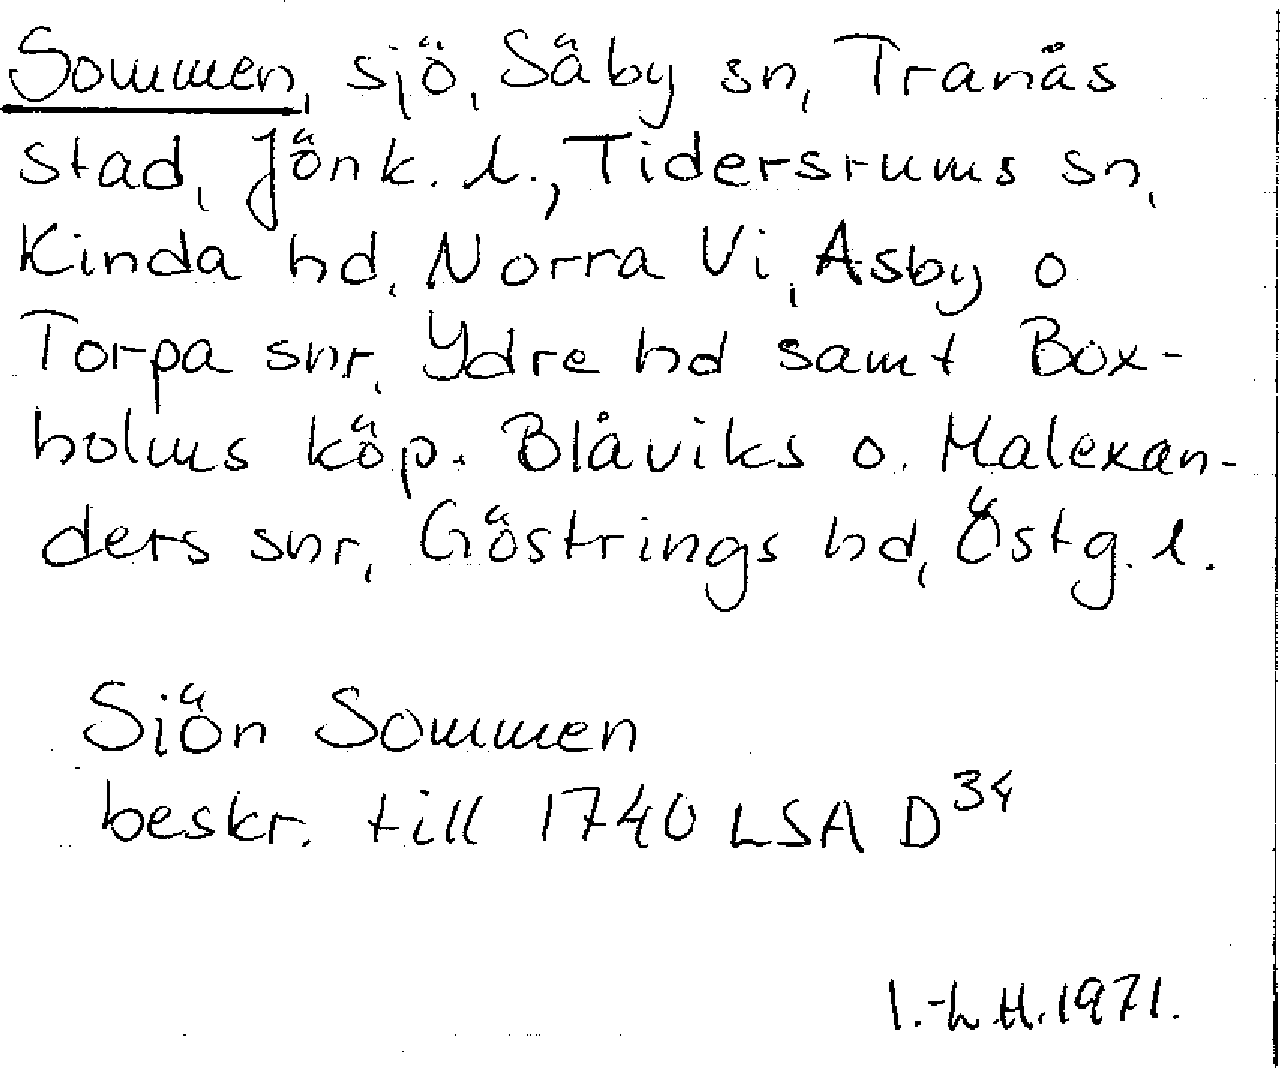 Sommen, sjö, Säby sn, Tranås
stad, Jönk. l., Tidersrums sn,
Kinda hd, Norra Vi, Asby o
Torpa snr, Ydre hd samt Box-
holms köp. Blåviks o. Malexan-
ders snr, Göstrings hd, Östg. l.
Siön Sommen
beskr. till 1740 LSA D34
I.-L.H. 1971.